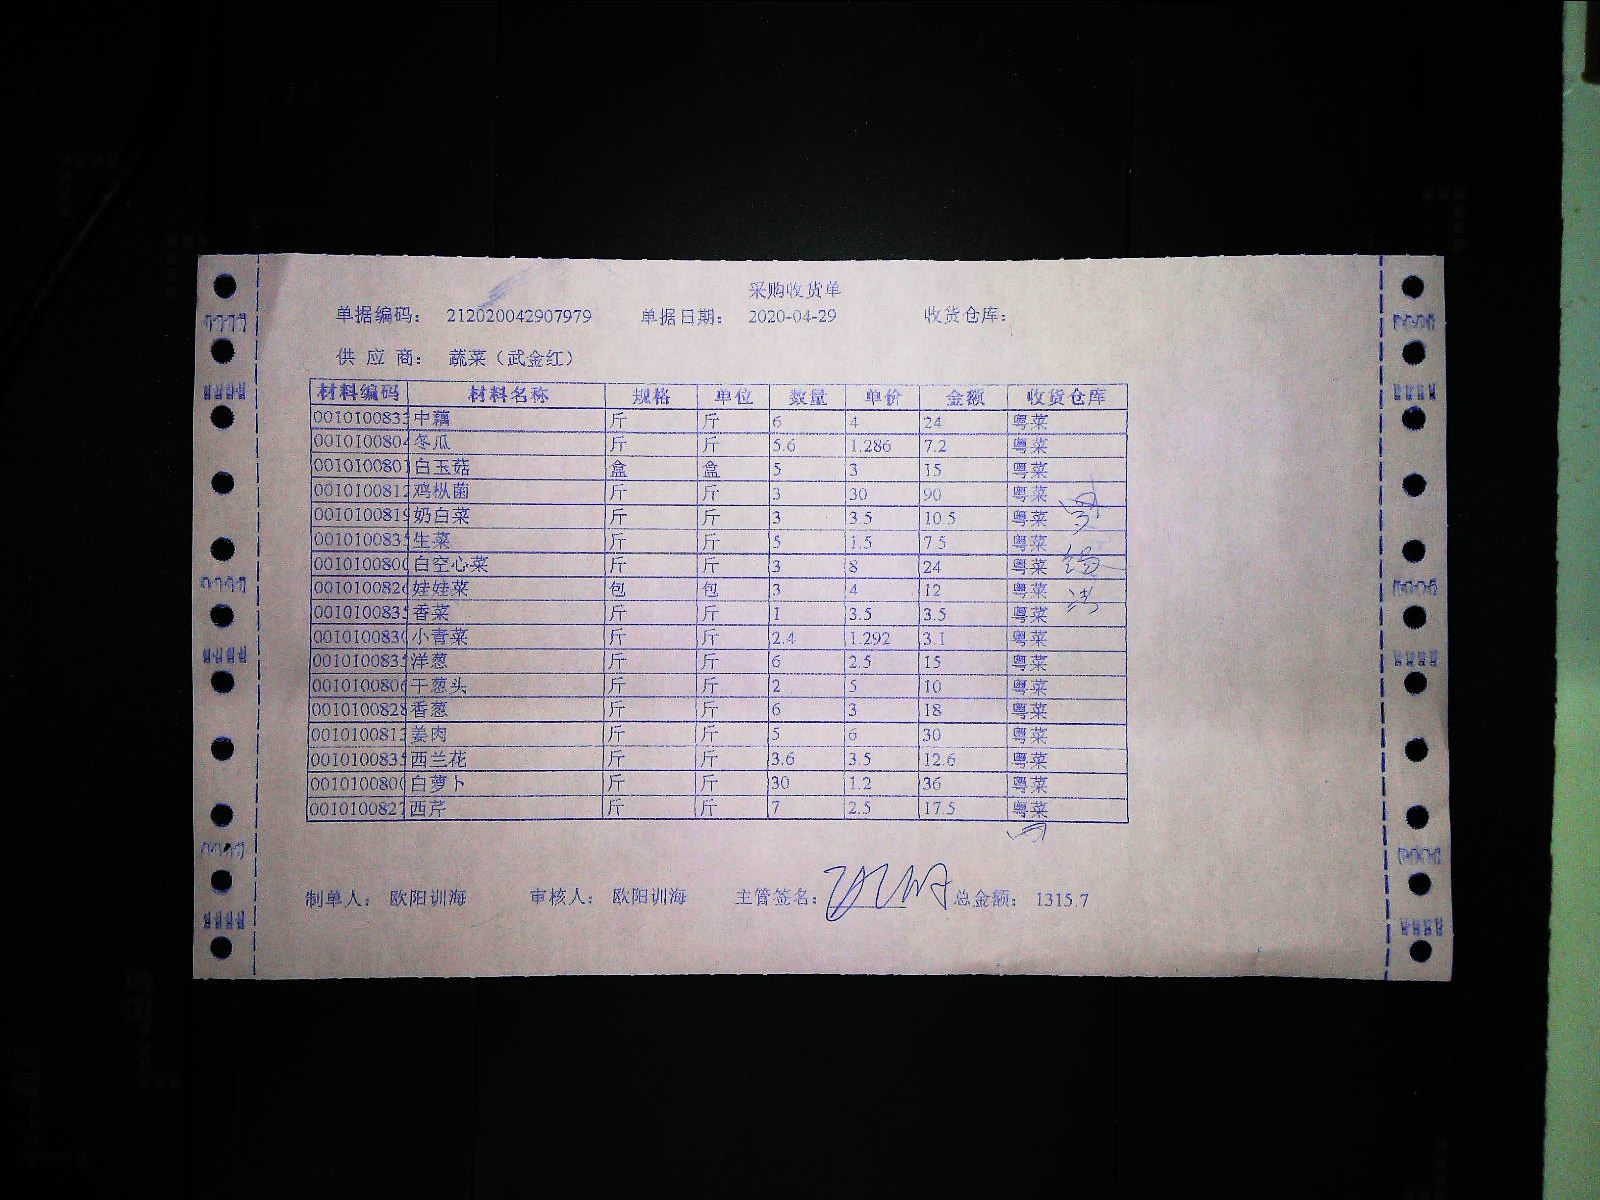 采购收货单
单据编码: 212020042907979 单据日期: 2020-04-29 收货仓库:
供 应 商: 蔬菜（武金红）
材料编码 材料名称 规格 单位 数量 单价 金额 收货仓库
001010083 中藕 斤 斤 6 4 24 粤菜
0010100804 冬瓜 斤 斤 5.6 1.286 7.2 粤菜
001010080 白玉菇 盒 盒 5 3 15 粤菜
001010081 鸡枞菌 斤 斤 3 30 90 粤菜
001010081 奶白菜 斤 斤 3 3.5 10.5 粤菜
001010083 生菜 斤 斤 5 1.5 7.5 粤菜
001010080 白空心菜 斤 斤 3 8 24 粤菜
001010082 娃娃菜 包 包 3 4 12 粤菜
001010083 香菜 斤 斤 1 3.5 3.5 粤菜
001010083 小青菜 斤 斤 2.4 1.292 3.1 粤菜
001010083 洋葱 斤 斤 6 2.5 15 粤菜
001010080 干葱头 斤 斤 2 5 10 粤菜
0010100828 香葱 斤 斤 6 3 18 粤菜
001010081 姜肉 斤 斤 5 6 30 粤菜
001010083 西兰花 斤 斤 3.6 3.5 12.6 粤菜
001010080 白萝卜 斤 斤 30 1.2 36 粤菜
001010082 西芹 斤 斤 7 2.5 17.5 粤菜
制单人: 欧阳训海 审核人: 欧阳训海 主管签名: 总金额: 1315.7